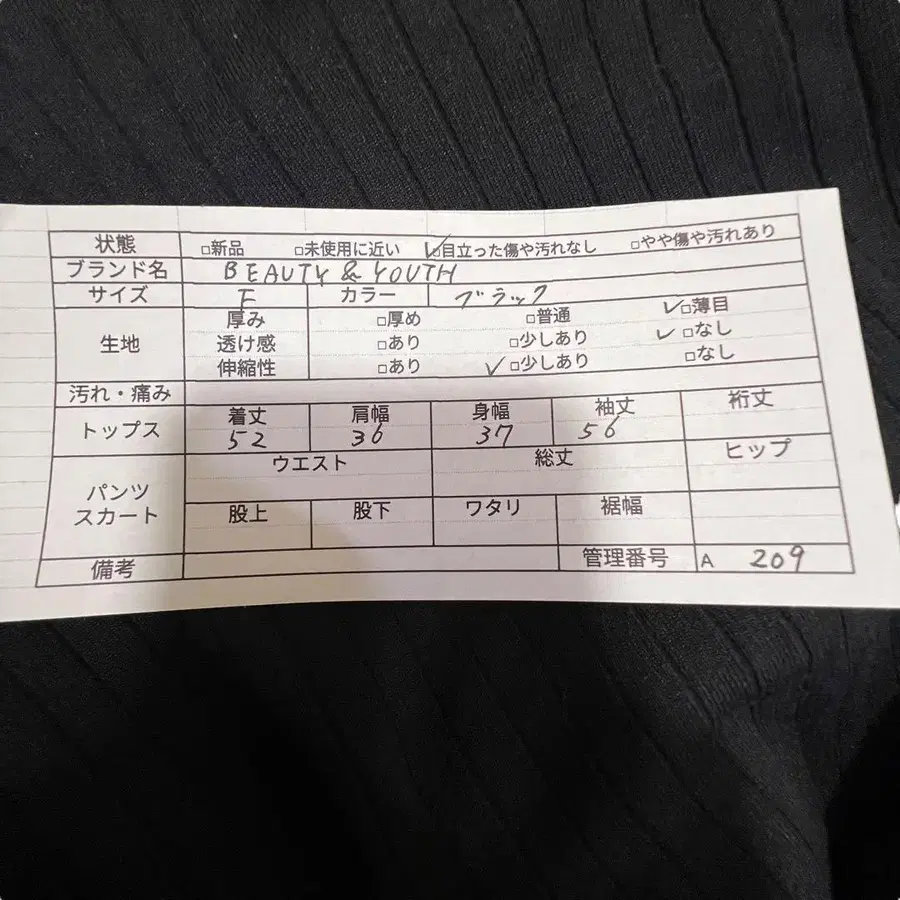 状態 □新品 □未使用に近い ☑目立った傷や汚れなし □やや傷や汚れあり
ブランド名 BEAUTY & YOUTH
サイズ F カラー ブラック
生地 厚み □厚め □普通 ✓□薄目
透け感 □あり □少しあり ✓□なし
伸縮性 □あり ✓□少しあり □なし
汚れ・痛み
トップス 着丈 肩幅 身幅 袖丈 裄丈
52 36 37 56
パンツ スカート ウエスト 総丈 ヒップ
股上 股下 ワタリ 裾幅
備考 管理番号 A 209